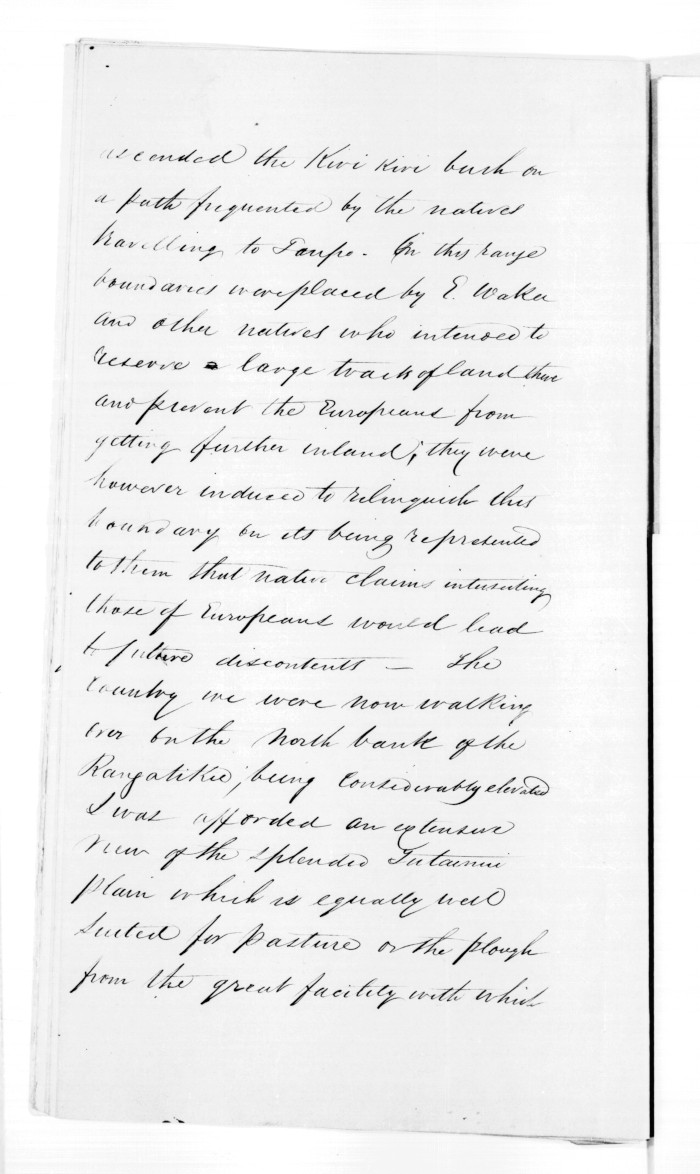 ascended the Kivi Kivi bush on
a path frequented by the natives
travelling to Taupo. On this range
boundaries were placed by E. Waka
and other natives who intended to
reserve a large track of land there
and prevent the Europeans from
getting further inland; they were
however induced to relinquish this
boundary on its being represented
to them that native claims intersecting
those of Europeans would lead
to future discontents — The
Country we were now walking
over on the North bank of the
Rangatikie, being Considerably elevated
I was afforded an extensive
View of the splended
plain which is equally well
suited for pasture or the plough
from the great facility with which